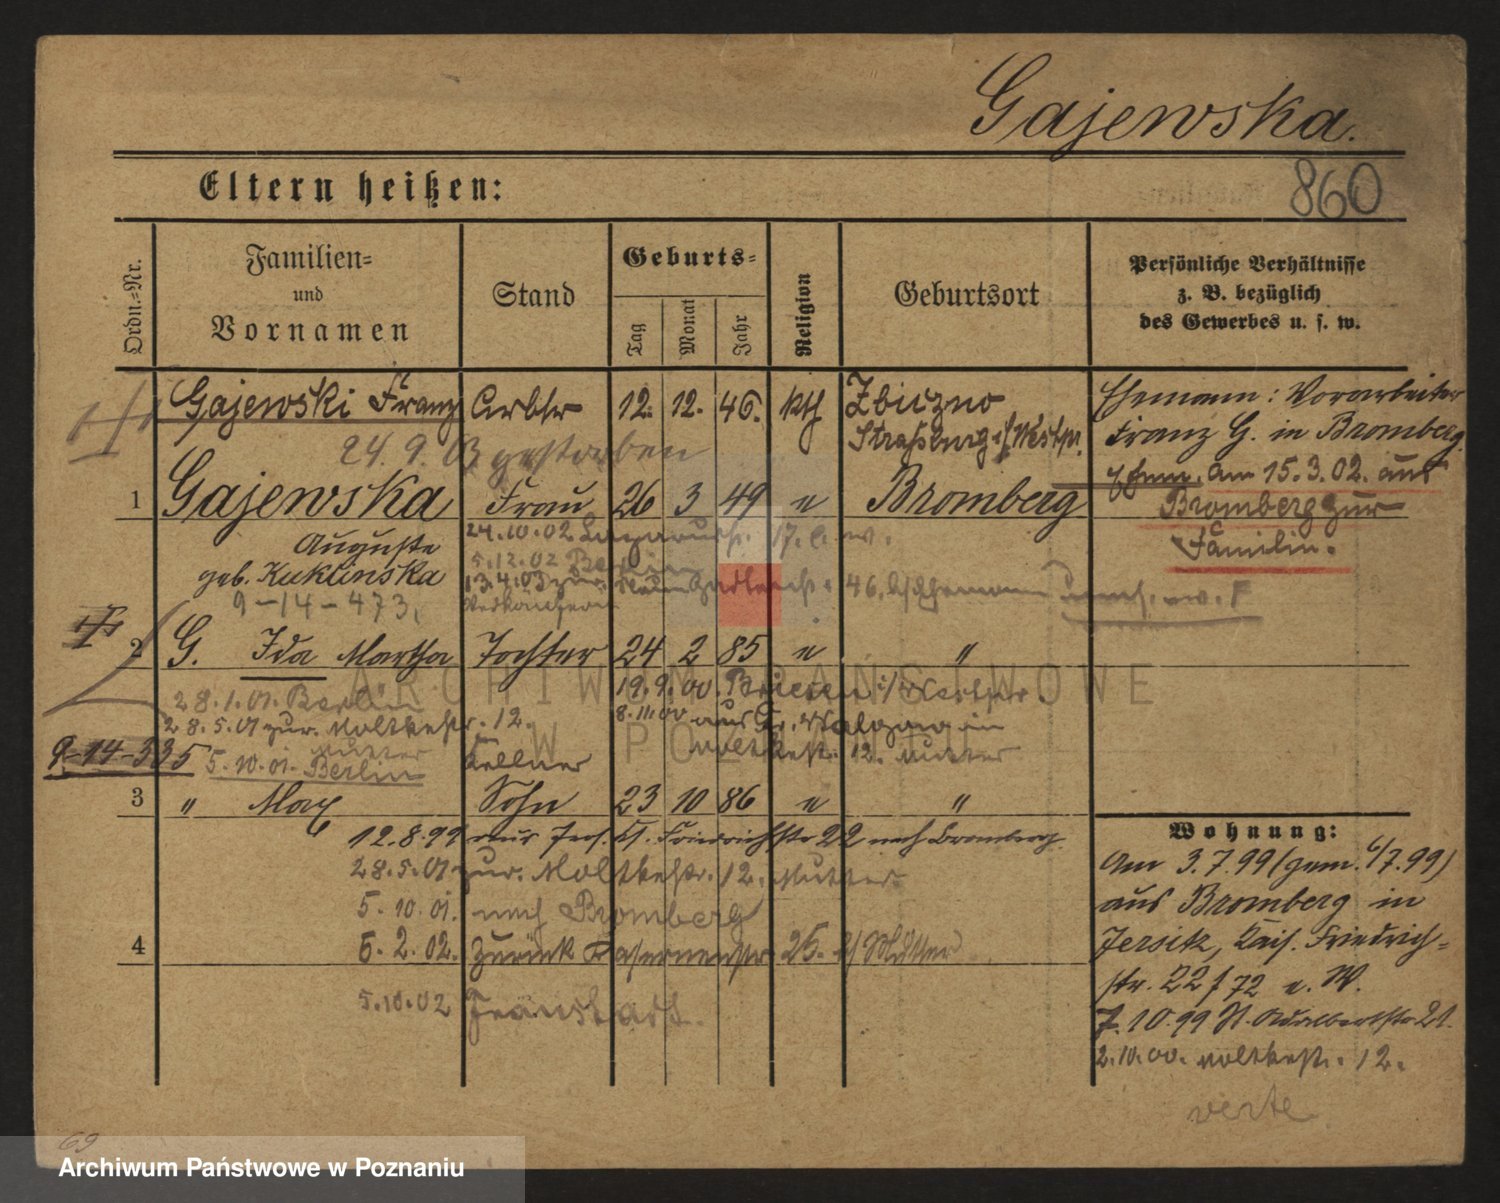 Gajewska.
860
Eltern heißen:
Ordn.=Nr.
Familien=
und
Vornamen
Stand
Geburts=
Tag
Monat
Jahr
Religion
Geburtsort
Persönliche Verhältnisse
z. B. bezüglich
des Gewerbes u. s. w.
Gajewski Franz Arbtr 12. 12. 46. kth Zbiczno
Straßburg i/Westpr.
24. 9. 03 gestorben
Ehemann: Vorarbeiter
Franz G. in Bromberg
Ehem. am 15.3.02. aus
Bromberg zur
Familie.
1 Gajewska Frau 26 3 49 " Bromberg
Auguste
geb. Kuklinska
9-14-473.
24.10.02
5.12.02 Berlin
13.4.03 zur. 46.
2 G. Ida Martha Tochter 24 2 85 " "
28.1.01. Berlin
28.5.01 zur. Moltkestr. 12.
Mutter
9-14-535
5.10.01. Berlin
19.9.00. Briesen i/Westpr.
8.11.00 aus Gr. in
Moltkestr. 12. Mutter
Kellner
3 " Max Sohn 23 10 86 " "
12.8.99 aus Jers. K. Friedrichstr 22 nach Bromberg.
28.5.01 zur. Moltkestr. 12. Mutter
5.10.01. nach Bromberg
4
6.2.02. zurück Kasernenstr. 25. b/Mutter
5.10.02 Fraustadt.
Wohnung:
Am 3.7.99 (gem. 6/7.99)
aus Bromberg in
Jersitz, Kais. Friedrich=
str. 22 f 72 e. W.
7.10.99 St. Adalbertstr 21.
2.10.00. Moltkestr. 12.
verte
69
ARCHIWUM PAŃSTWOWE
W POZNANIU
Archiwum Państwowe w Poznaniu